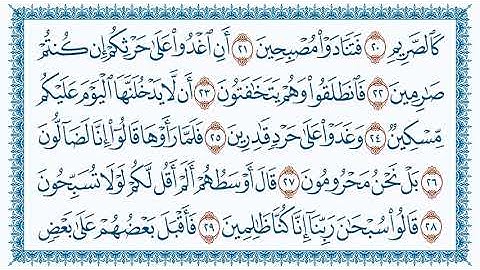 كَٱلصَّرِيمِ ٢٠ فَتَنَادَوْا۟ مُصْبِحِينَ ٢١ أَنِ ٱغْدُوا۟ عَلَىٰ حَرْثِكُمْ إِن كُنتُمْ
صَٰرِمِينَ ٢٢ فَٱنطَلَقُوا۟ وَهُمْ يَتَخَٰفَتُونَ ٢٣ أَن لَّا يَدْخُلَنَّهَا ٱلْيَوْمَ عَلَيْكُم
مِّسْكِينٌ ٢٤ وَغَدَوْا۟ عَلَىٰ حَرْدٍ قَٰدِرِينَ ٢٥ فَلَمَّا رَأَوْهَا قَالُوٓا۟ إِنَّا لَضَآلُّونَ
٢٦ بَلْ نَحْنُ مَحْرُومُونَ ٢٧ قَالَ أَوْسَطُهُمْ أَلَمْ أَقُل لَّكُمْ لَوْلَا تُسَبِّحُونَ
٢٨ قَالُوا۟ سُبْحَٰنَ رَبِّنَآ إِنَّا كُنَّا ظَٰلِمِينَ ٢٩ فَأَقْبَلَ بَعْضُهُمْ عَلَىٰ بَعْضٍ